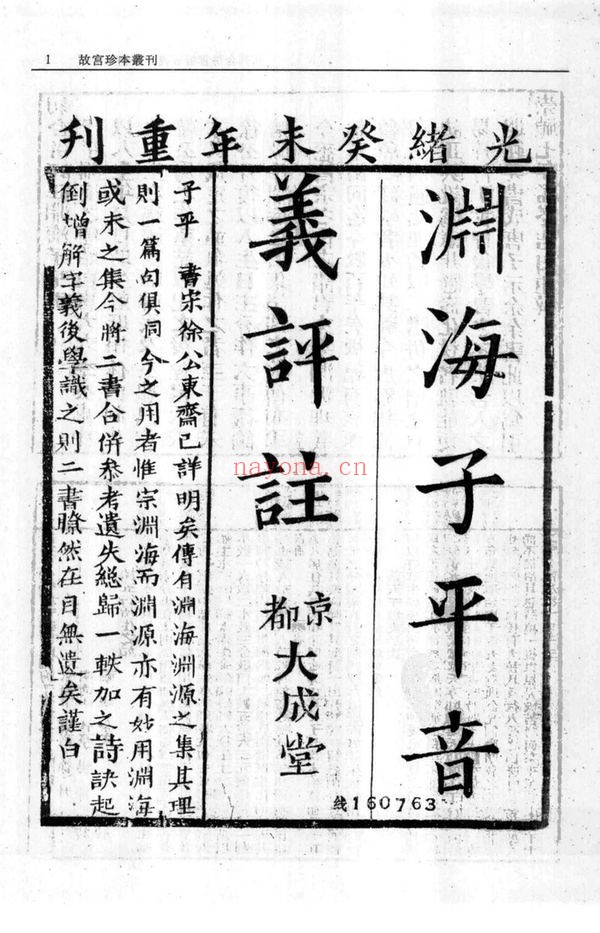 1 故宮珍本叢刊
光緒癸未年重刊
淵海子平音
義評註
京都大成堂
子平一書宋徐公東齋已詳明矣傳有淵海淵源之集其理
則一篇句俱同今之用者惟宗淵海而淵源亦有妙用淵海
或未之集今將二書合併參考遺失總歸一帙加之詩訣起
倒增解字義後學識之則二書瞭然在目無遺矣謹白
线160763
nayona.cn